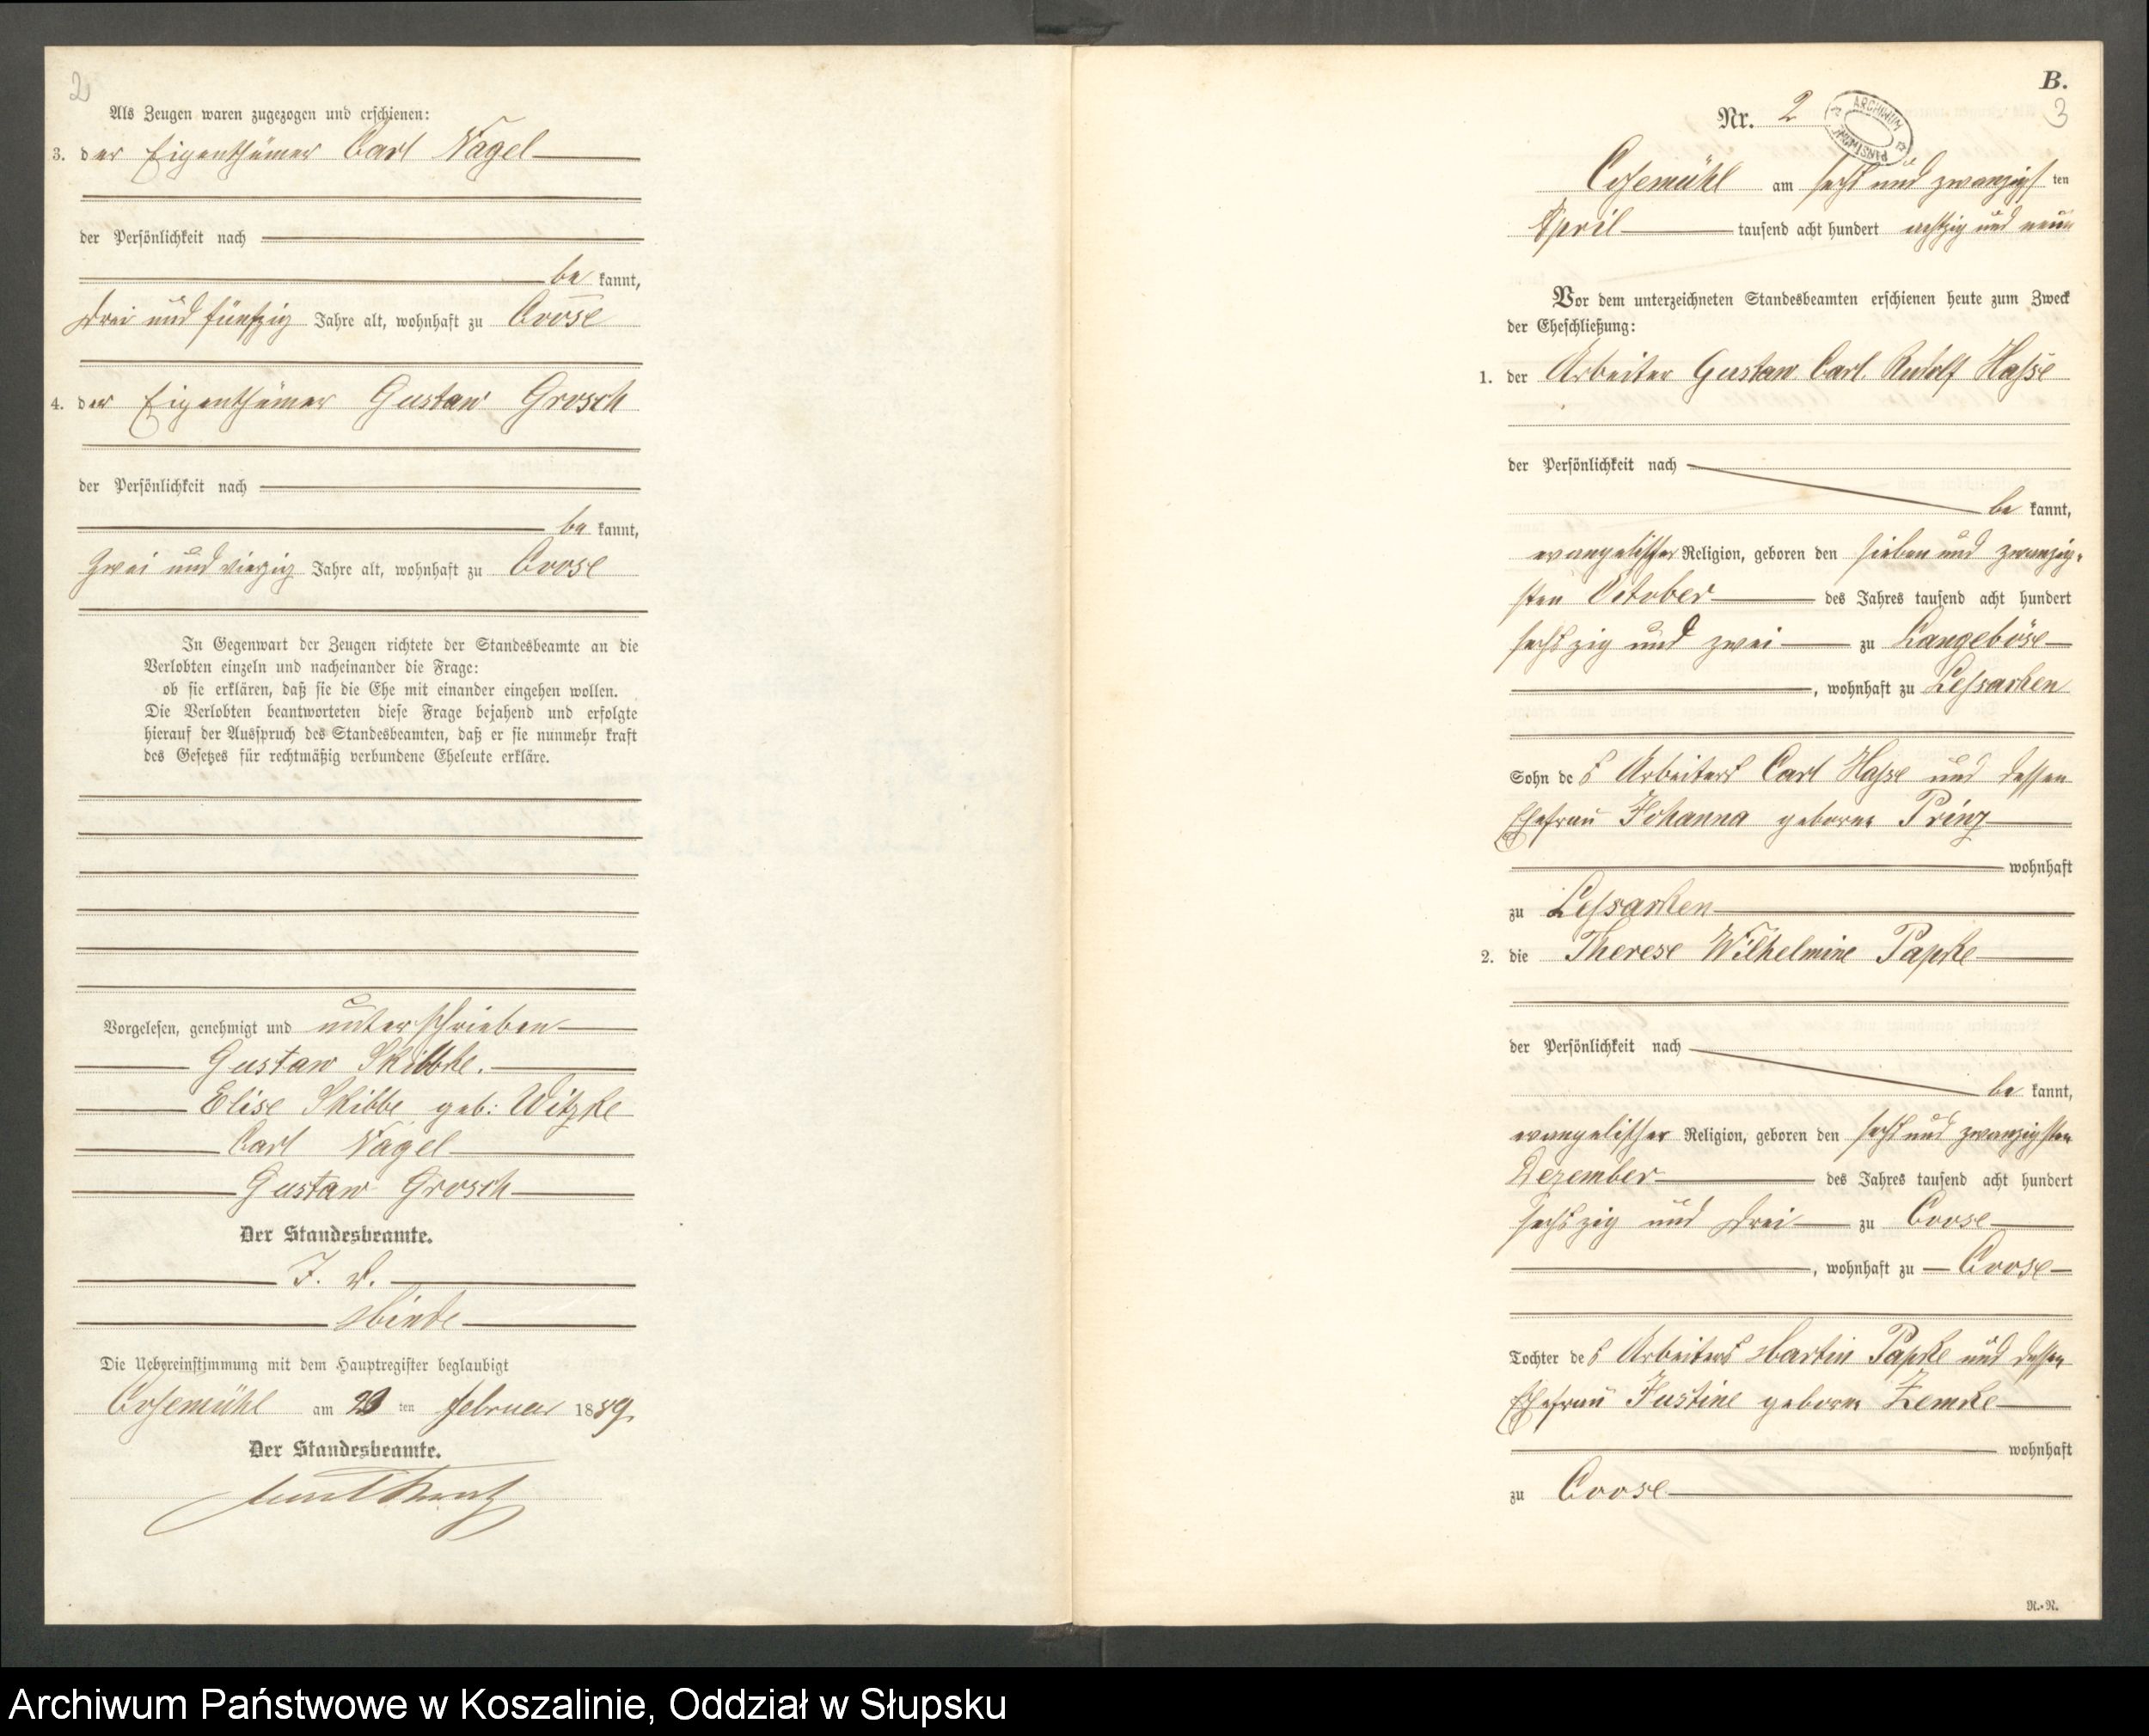 2
Als Zeugen waren zugezogen und erschienen:
3. der Eigenthümer Carl Nagel
der Persönlichkeit nach
be kannt,
drei und fünfzig Jahre alt, wohnhaft zu Coose
4. der Eigenthümer Gustav Grosch
der Persönlichkeit nach
be kannt,
zwei und vierzig Jahre alt, wohnhaft zu Coose
In Gegenwart der Zeugen richtete der Standesbeamte an die
Verlobten einzeln und nacheinander die Frage:
ob sie erklären, daß sie die Ehe mit einander eingehen wollen.
Die Verlobten beantworteten diese Frage bejahend und erfolgte
hierauf der Ausspruch des Standesbeamten, daß er sie nunmehr kraft
des Gesetzes für rechtmäßig verbundene Eheleute erkläre.
Vorgelesen, genehmigt und unterschrieben
Gustav
Elise Skibbe geb: Witzke
Carl Nagel
Gustav Grosch
Der Standesbeamte.
J. V.
Die Uebereinstimmung mit dem Hauptregister beglaubigt
Cosemühl am ten Februar 1889.
Der Standesbeamte.
B.
3
Nr. 2
ARCHIWUM PAŃSTWOWE
Cosemühl am sechs und zwanzigs ten
April tausend acht hundert achtzig und neun
Vor dem unterzeichneten Standesbeamten erschienen heute zum Zweck
der Eheschließung:
1. der Arbeiter Gustav Carl Rudolf Hasse
der Persönlichkeit nach
be kannt,
evangelischer Religion, geboren den sieben und zwanzig-
sten October des Jahres tausend acht hundert
sechszig und zwei zu Langeböse
, wohnhaft zu Lessarken
Sohn de s Arbeiters Carl Hasse und dessen
Ehefrau Johanna geborne Prinz
wohnhaft
zu Lessarken
2. die Therese Wilhelmine Papke
der Persönlichkeit nach
be kannt,
evangelischer Religion, geboren den sechs und zwanzigsten
Dezember des Jahres tausend acht hundert
sechszig und drei zu Coose
, wohnhaft zu Coose
Tochter de s Arbeiters Martin Papke und dessen
Ehefrau Justine geborne Zemke
wohnhaft
zu Coose
R.-R.
Archiwum Państwowe w Koszalinie, Oddział w Słupsku